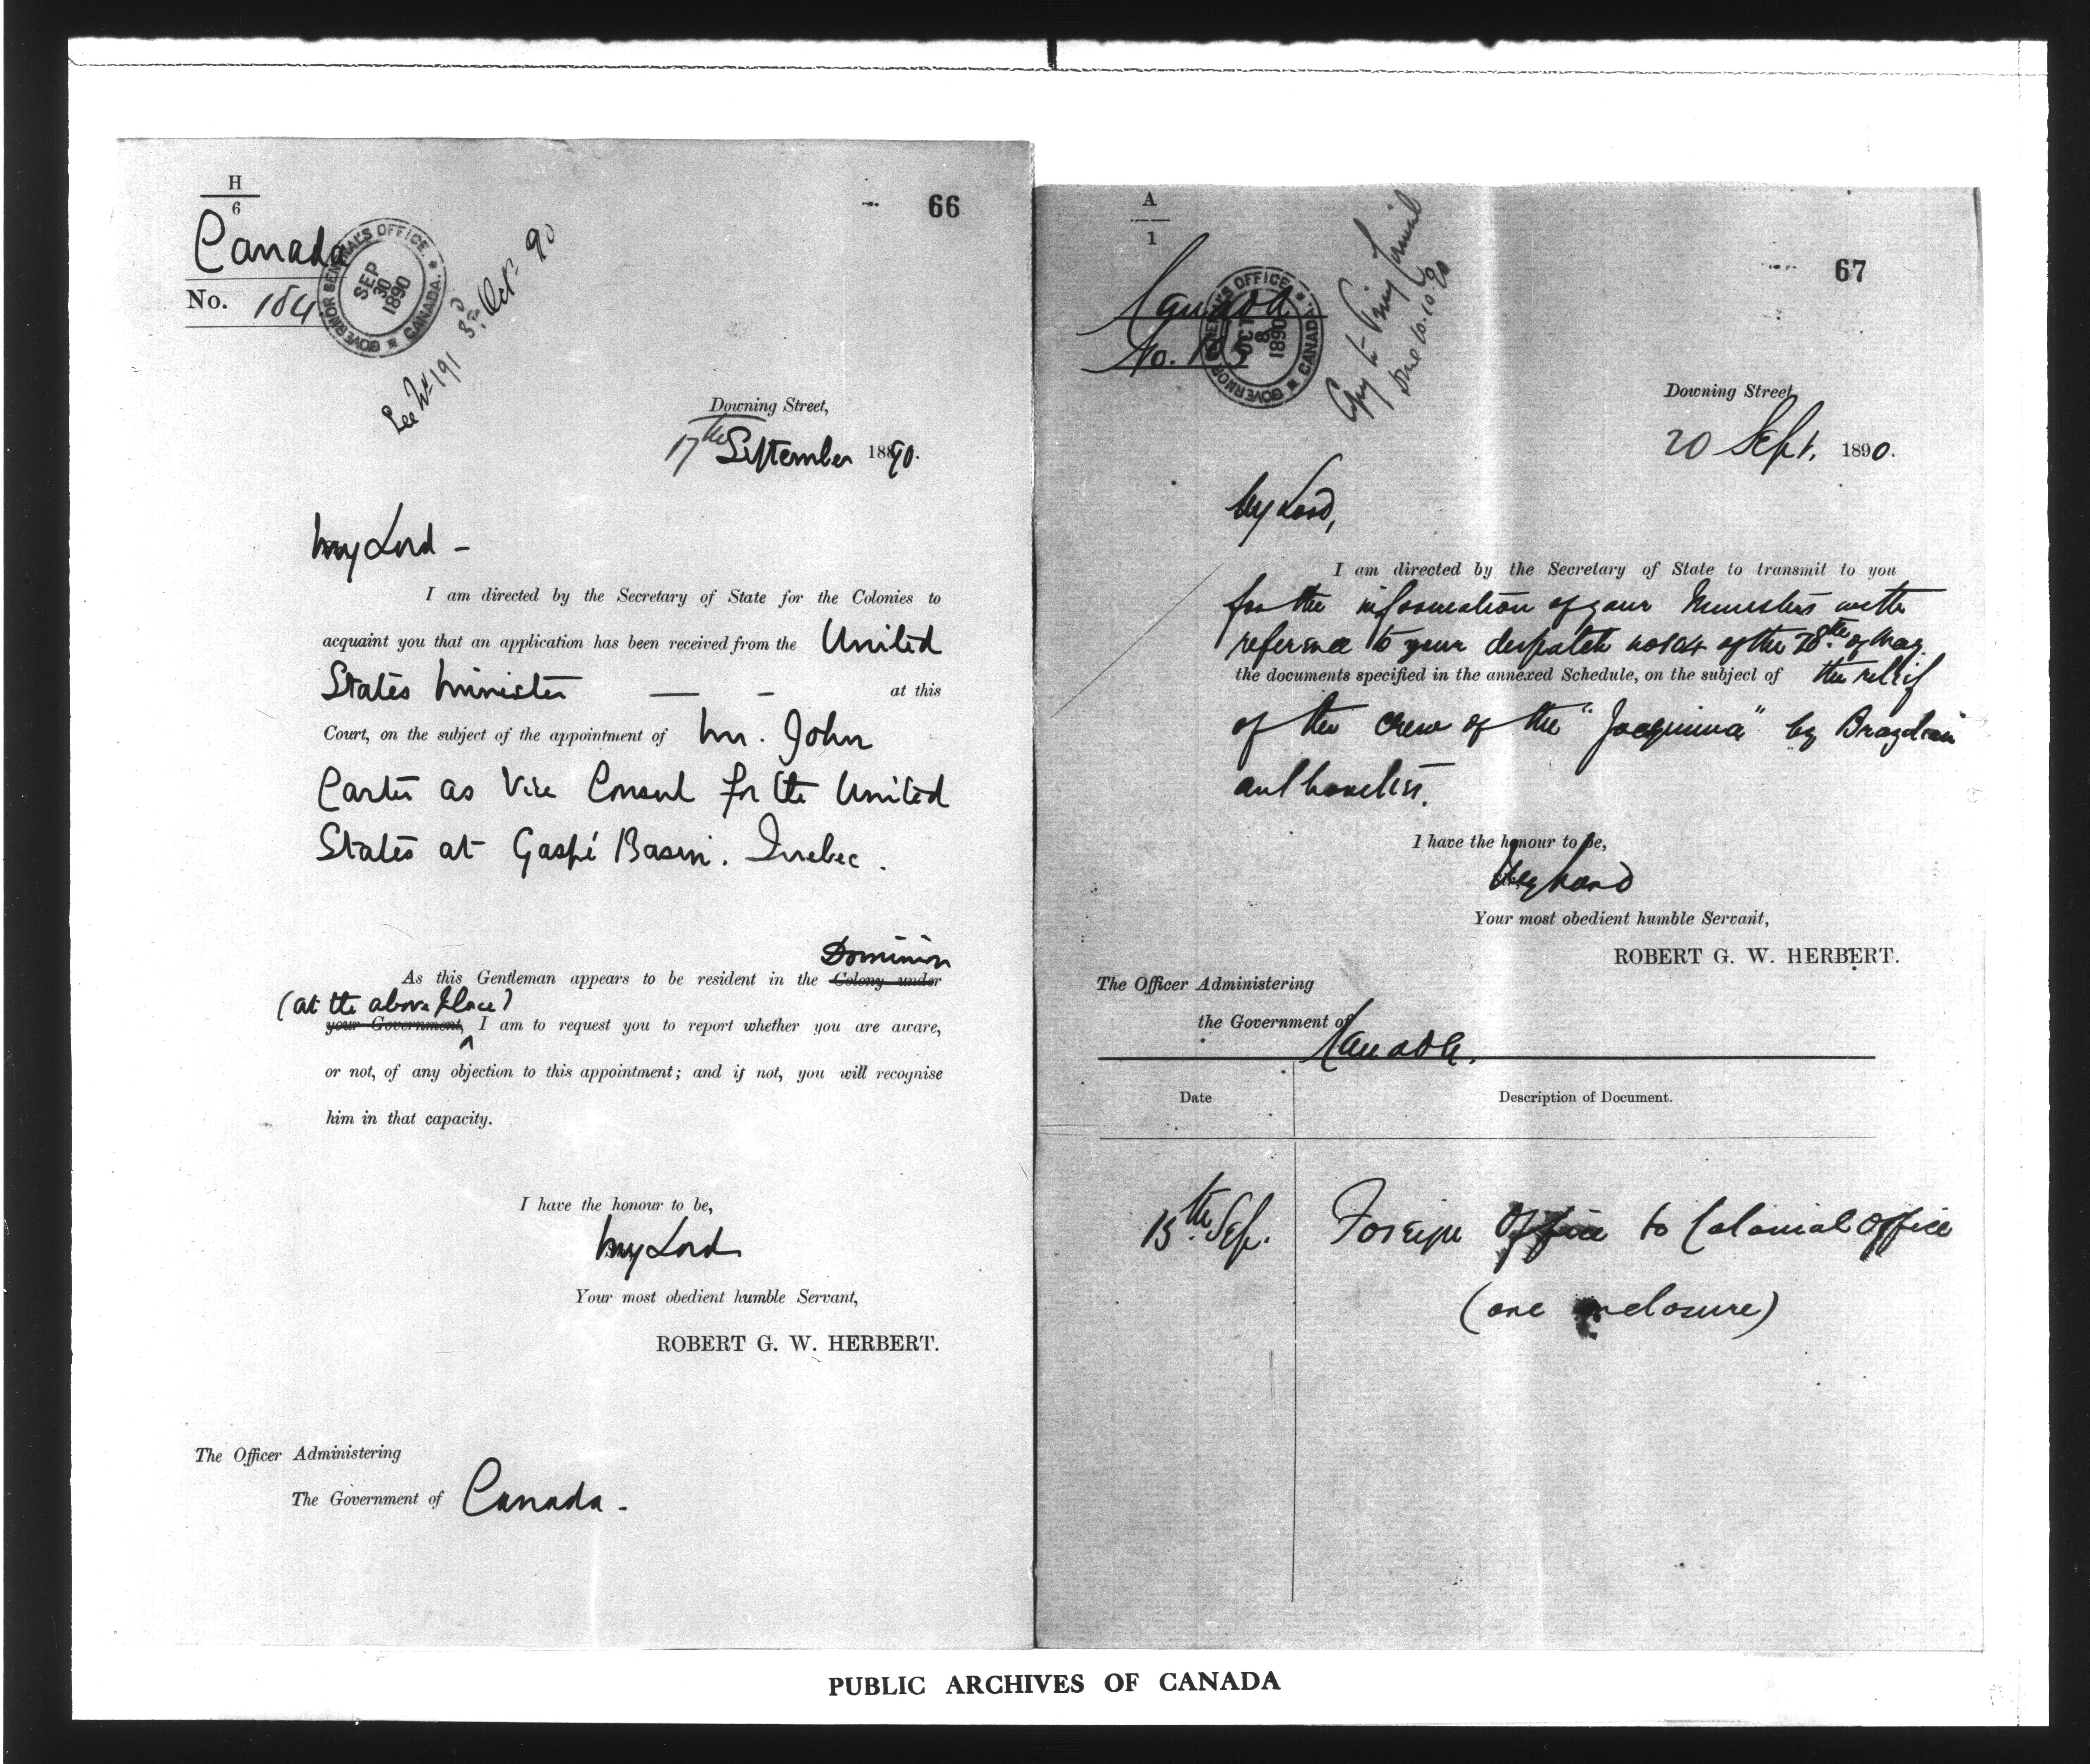 H
6
66
Canada
No. 184
GOVERNOR GENERAL'S OFFICE. CANADA.
SEP
30
1890
See No 191 3rd Oct 90
Downing Street,
17th September 1890.
My Lord –
I am directed by the Secretary of State for the Colonies to
acquaint you that an application has been received from the United
States Minister — – at this
Court, on the subject of the appointment of Mr. John
Carter as Vice Consul for the United
States at Gaspé Basin. Quebec.
Dominion
As this Gentleman appears to be resident in the Colony under
(at the above place)
your Government, I am to request you to report whether you are aware,
or not, of any objection to this appointment; and if not, you will recognise
him in that capacity.
I have the honour to be,
My Lord
Your most obedient humble Servant,
ROBERT G. W. HERBERT.
The Officer Administering
The Government of Canada.
A
1
67
Canada
No. 185
GOVERNOR GENERAL'S OFFICE. CANADA.
8
1890
Copy to Privy Council
10.10.90
Downing Street,
20 Sept. 1890.
My Lord,
I am directed by the Secretary of State to transmit to you
for the information of your Ministers with
reference to your despatch No 124 of the 28th of May
the documents specified in the annexed Schedule, on the subject of the relief
of the crew of the "Joequina" by Brazilian
authorities.
I have the honour to be,
My Lord
Your most obedient humble Servant,
ROBERT G. W. HERBERT.
The Officer Administering
the Government of Canada.
Date Description of Document.
15th Sep. Foreign Office to Colonial Office
(one enclosure)
PUBLIC ARCHIVES OF CANADA